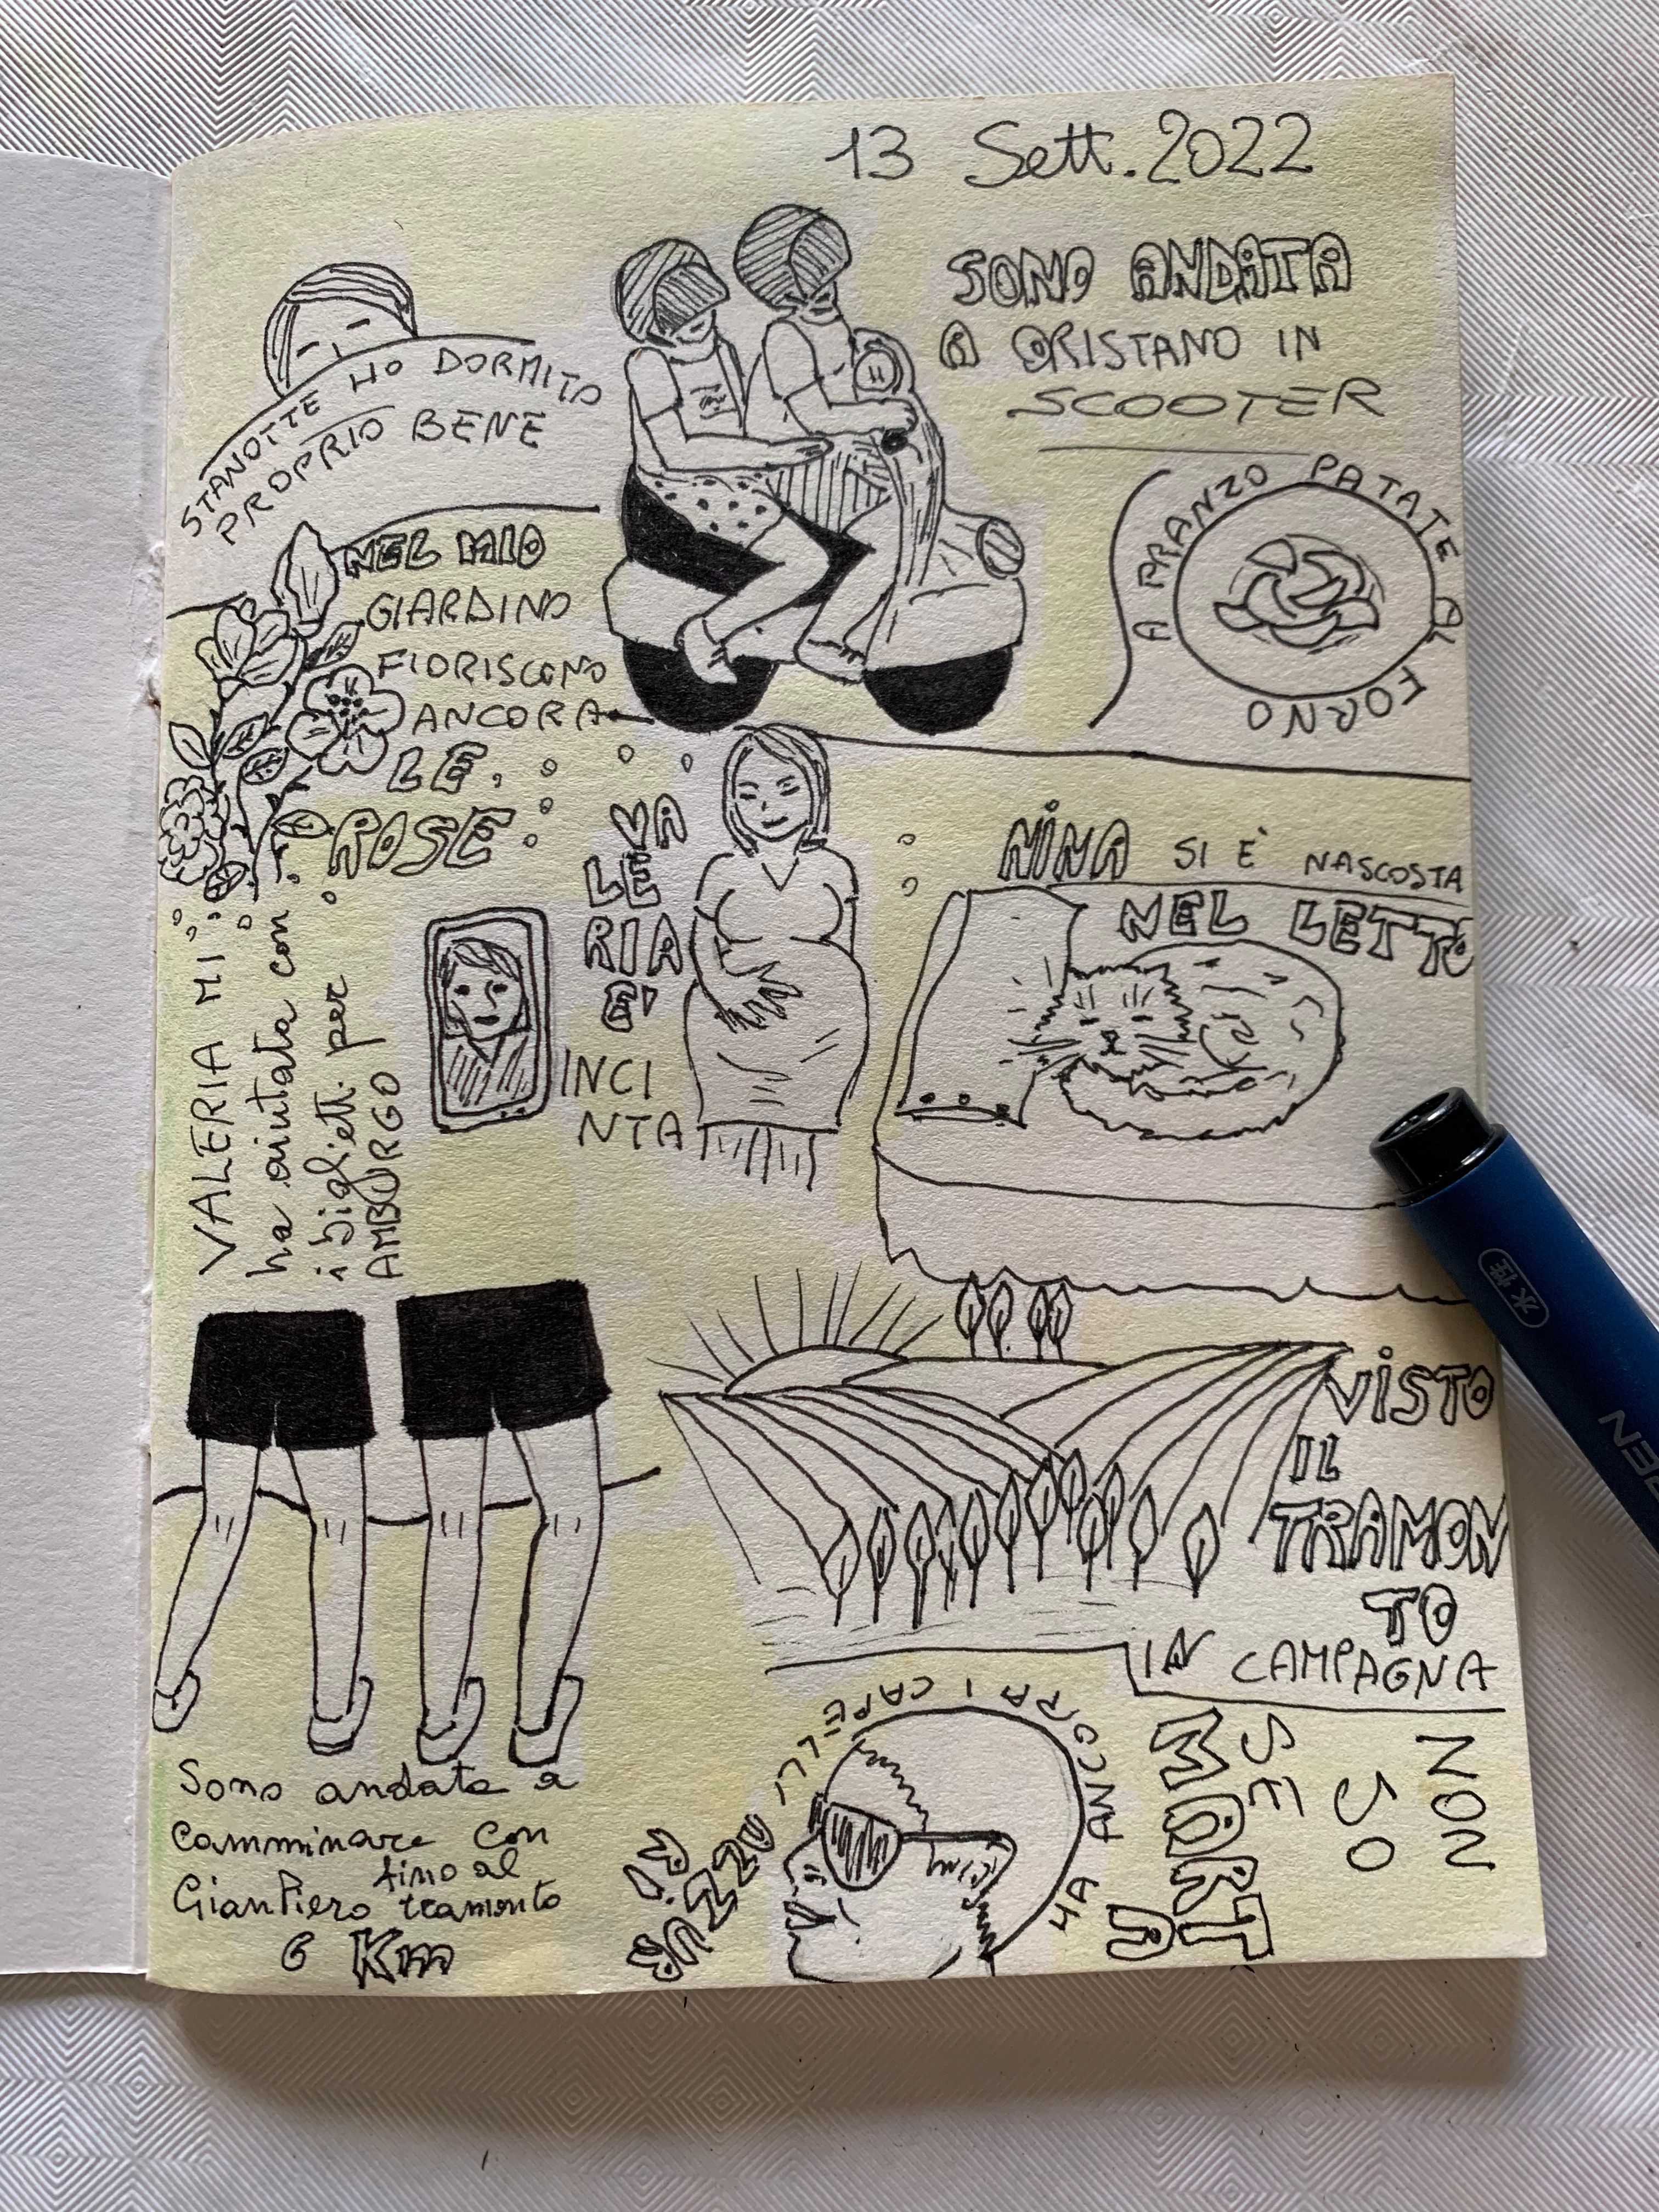 13 Sett. 2022
STANOTTE HO DORMITO
PROPRIO BENE
SONO ANDATA
A ORISTANO IN
SCOOTER
A PRANZO PATATE AL FORNO
NEL MIO
GIARDINO
FIORISCONO
ANCORA
LE
ROSE
VALERIA MI
ha aiutata con
i bigliett. per
AMBURGO
VA
LE
RIA
E'
INCI
NTA
NINA SI È NASCOSTA
NEL LETTO
VISTO
IL
TRAMON
TO
IN CAMPAGNA
Sono andata a
camminare con
GianPiero fino al
tramonto
6 Km
HA ANCORA I CAPELLI
NON
SO
SE
MORT
A
水性